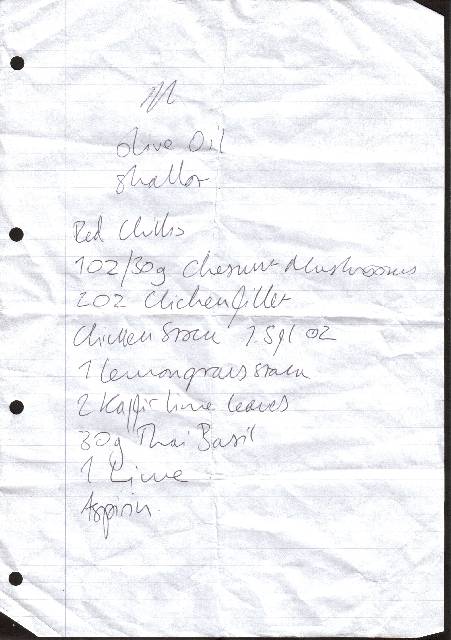 Olive Oil
Shallot
Red Chillis
1oz/30g Chesnut Mushrooms
2oz Chicken fillet
Chicken Stock 7.5 fl oz
1 Lemongrass stalk
2 Kaffir lime leaves
30g Thai Basil
1 Lime
Aspirin